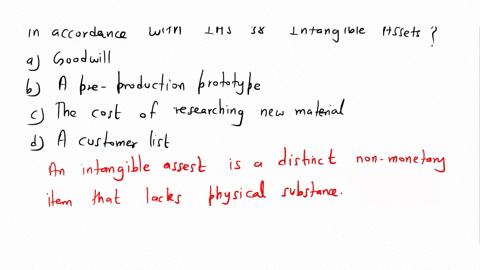 in accordance with IAS 38 Intangible Assets?
a) Goodwill
b) A pre-production prototype
c) The cost of researching new material
d) A customer list
An intangible assest is a distinct non-monetary
item that lacks physical substance.